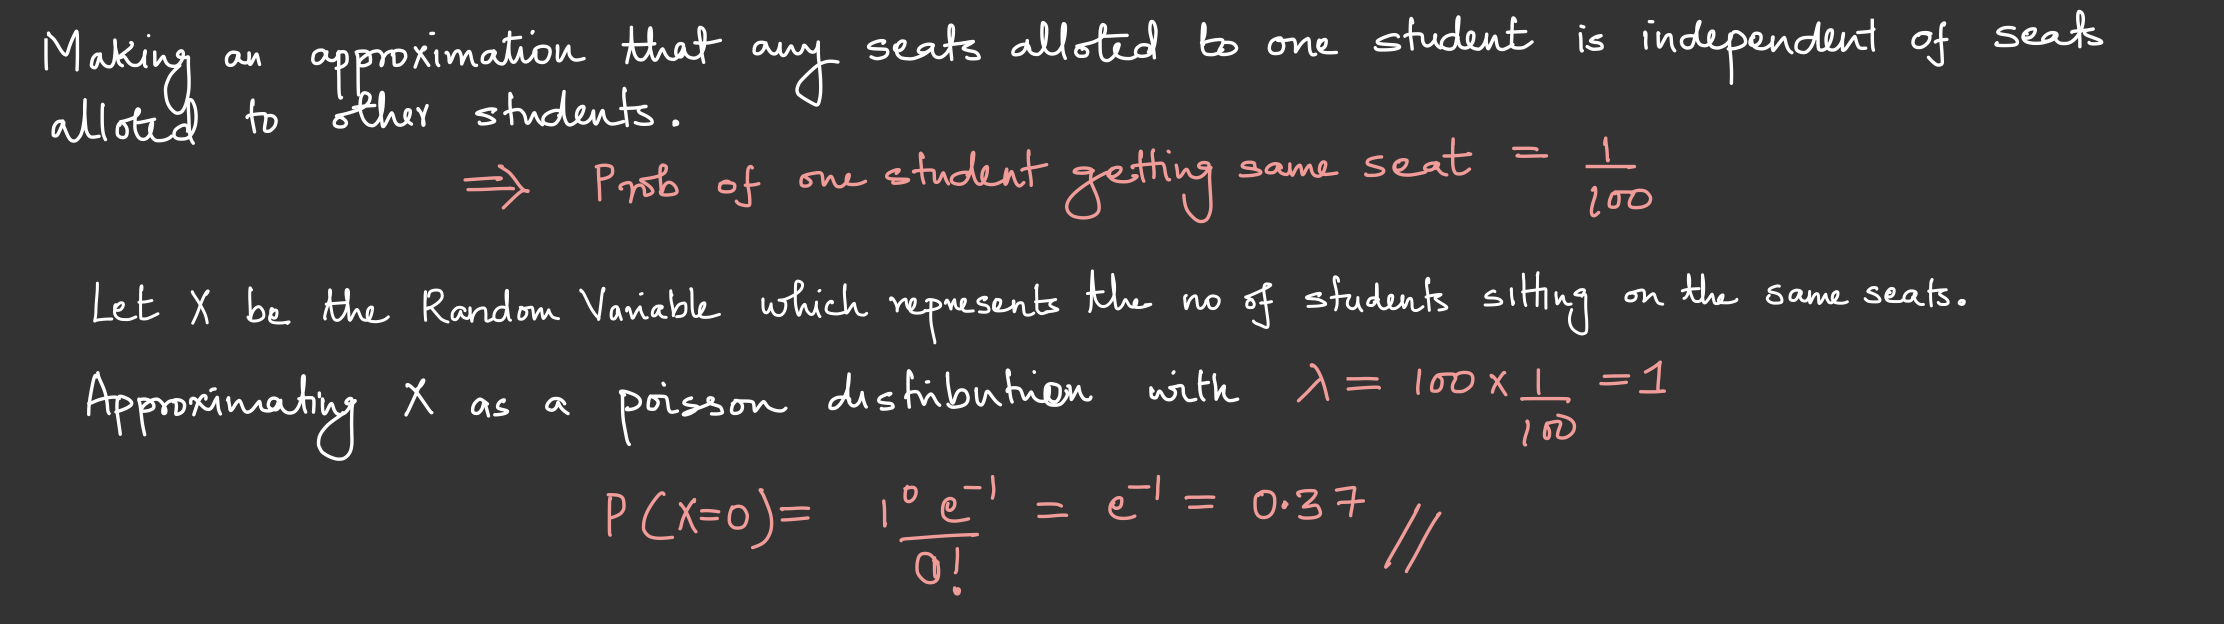 Making an approximation that any seats alloted to one student is independent of seats
alloted to other students.
⇒ Prob of one student getting same seat = 1/100
Let X be the Random Variable which represents the no of students sitting on the same seats.
Approximating X as a poisson distribution with λ = 100 × 1/100 = 1
P(X=0) = 1⁰ e⁻¹/0! = e⁻¹ = 0.37 //